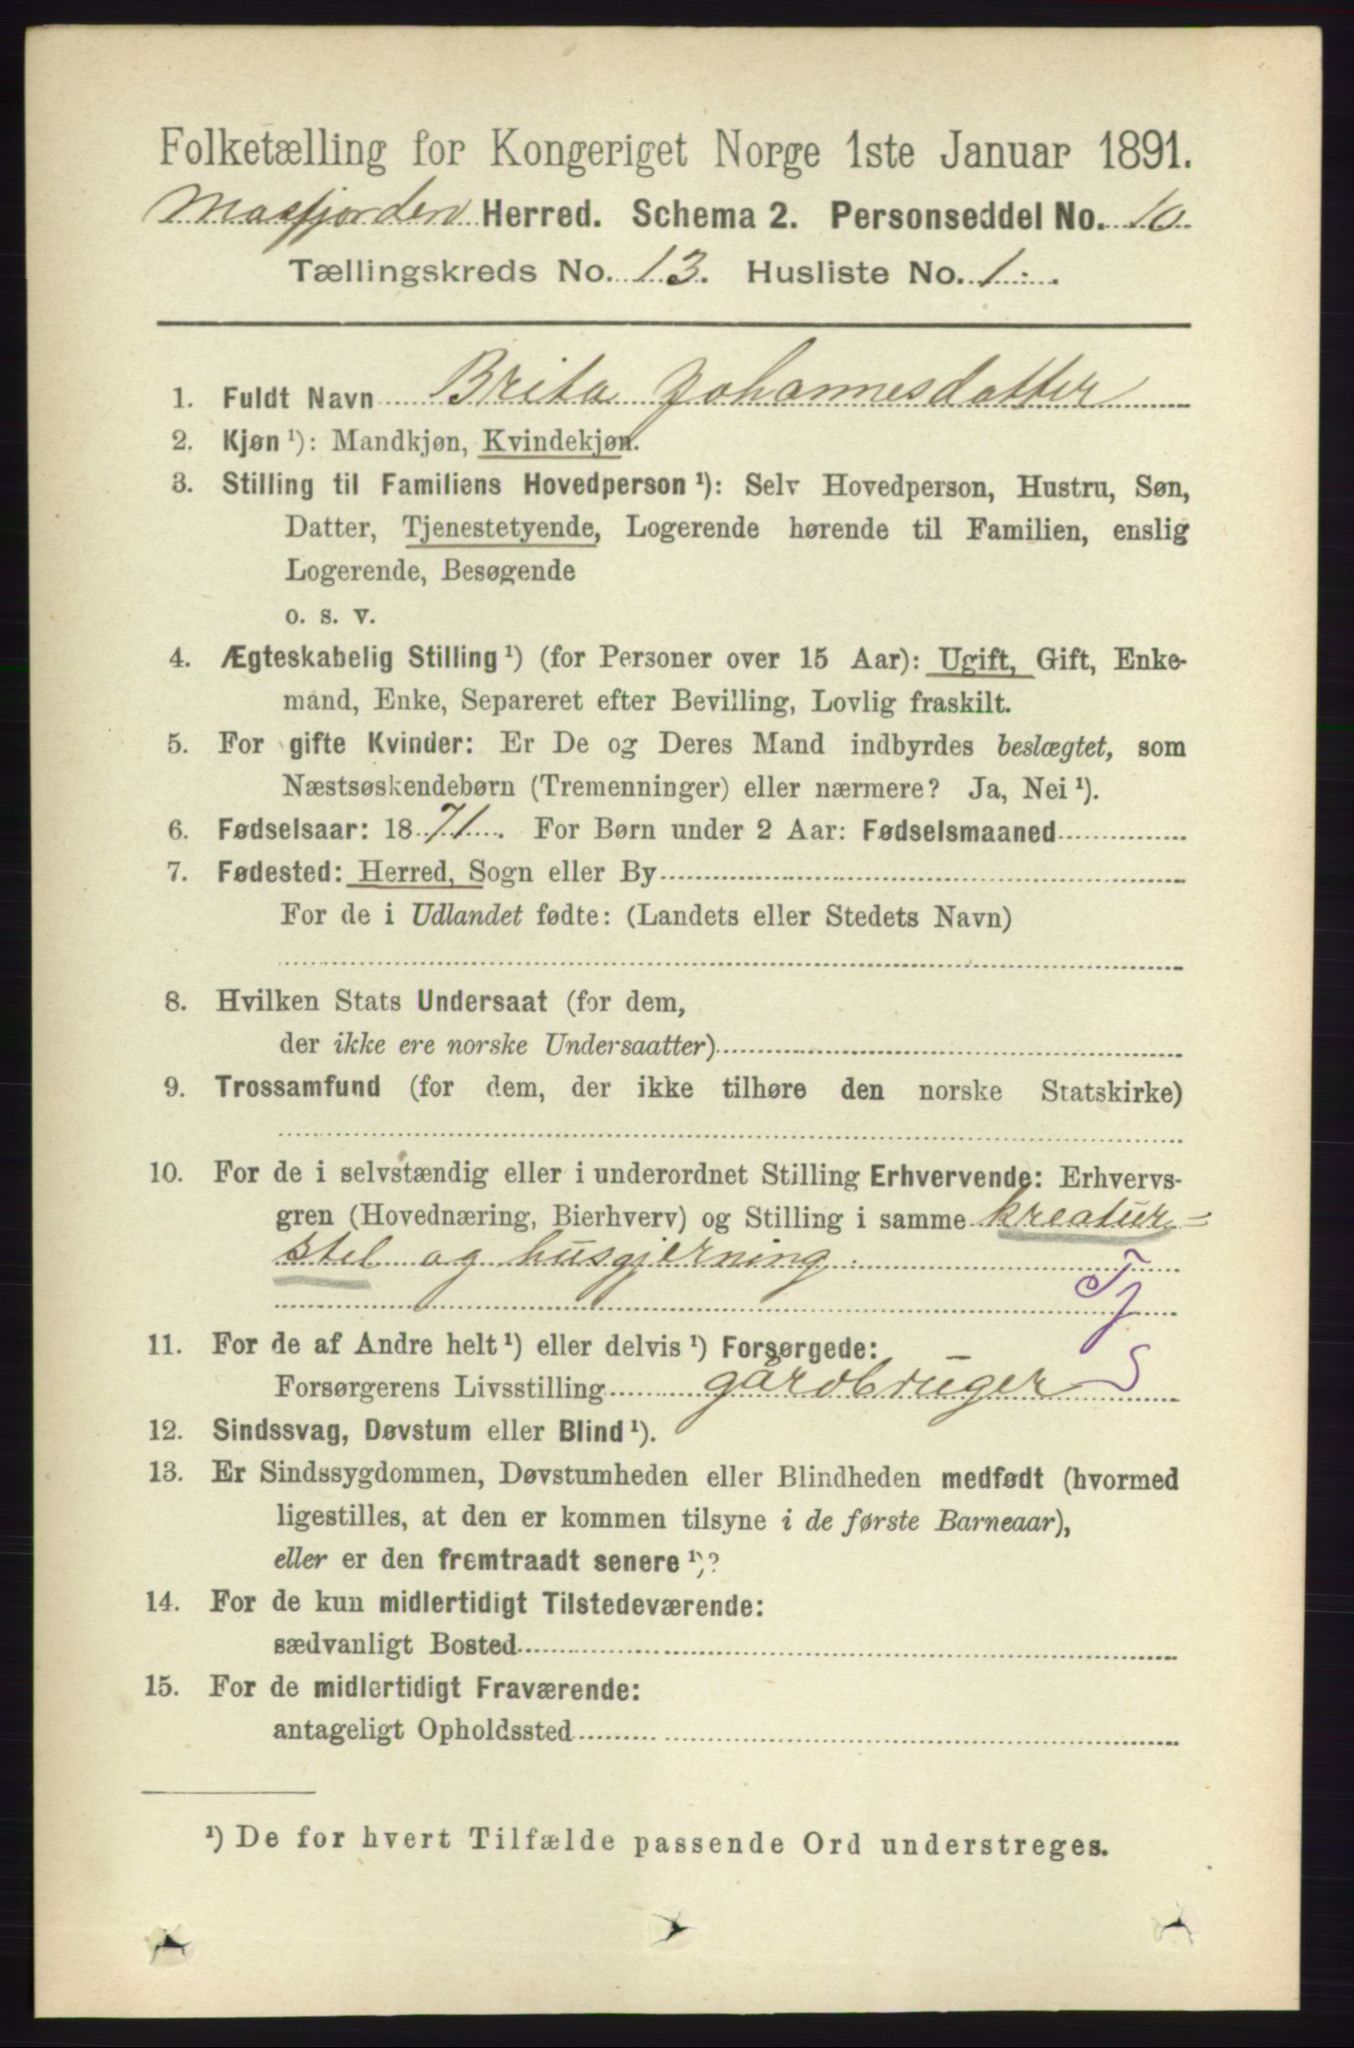 Folketælling for Kongeriget Norge 1ste Januar 1891.
Masfjorden Herred. Schema 2. Personseddel No. 10
Tællingskreds No. 13. Husliste No. 1.
1. Fuldt Navn Brita Johannesdatter
2. Kjøn ¹): Mandkjøn, Kvindekjøn.
3. Stilling til Familiens Hovedperson ¹): Selv Hovedperson, Hustru, Søn,
Datter, Tjenestetyende, Logerende hørende til Familien, enslig
Logerende, Besøgende
o. s. v.
4. Ægteskabelig Stilling ¹) (for Personer over 15 Aar): Ugift, Gift, Enke-
mand, Enke, Separeret efter Bevilling, Lovlig fraskilt.
5. For gifte Kvinder: Er De og Deres Mand indbyrdes beslægtet, som
Næstsøskendebørn (Tremenninger) eller nærmere? Ja, Nei ¹).
6. Fødselsaar: 1871. For Børn under 2 Aar: Fødselsmaaned
7. Fødested: Herred, Sogn eller By
For de i Udlandet fødte: (Landets eller Stedets Navn)
8. Hvilken Stats Undersaat (for dem,
der ikke ere norske Undersaatter)
9. Trossamfund (for dem, der ikke tilhøre den norske Statskirke)
10. For de i selvstændig eller i underordnet Stilling Erhvervende: Erhvervs-
gren (Hovednæring, Bierhverv) og Stilling i samme kreatur=
stel og husgjerning.
Tj
11. For de af Andre helt ¹) eller delvis ¹) Forsørgede:
Forsørgerens Livsstilling gårdbruger S
12. Sindssvag, Døvstum eller Blind ¹).
13. Er Sindssygdommen, Døvstumheden eller Blindheden medfødt (hvormed
ligestilles, at den er kommen tilsyne i de første Barneaar),
eller er den fremtraadt senere ¹)?
14. For de kun midlertidigt Tilstedeværende:
sædvanligt Bosted
15. For de midlertidigt Fraværende:
antageligt Opholdssted
¹) De for hvert Tilfælde passende Ord understreges.